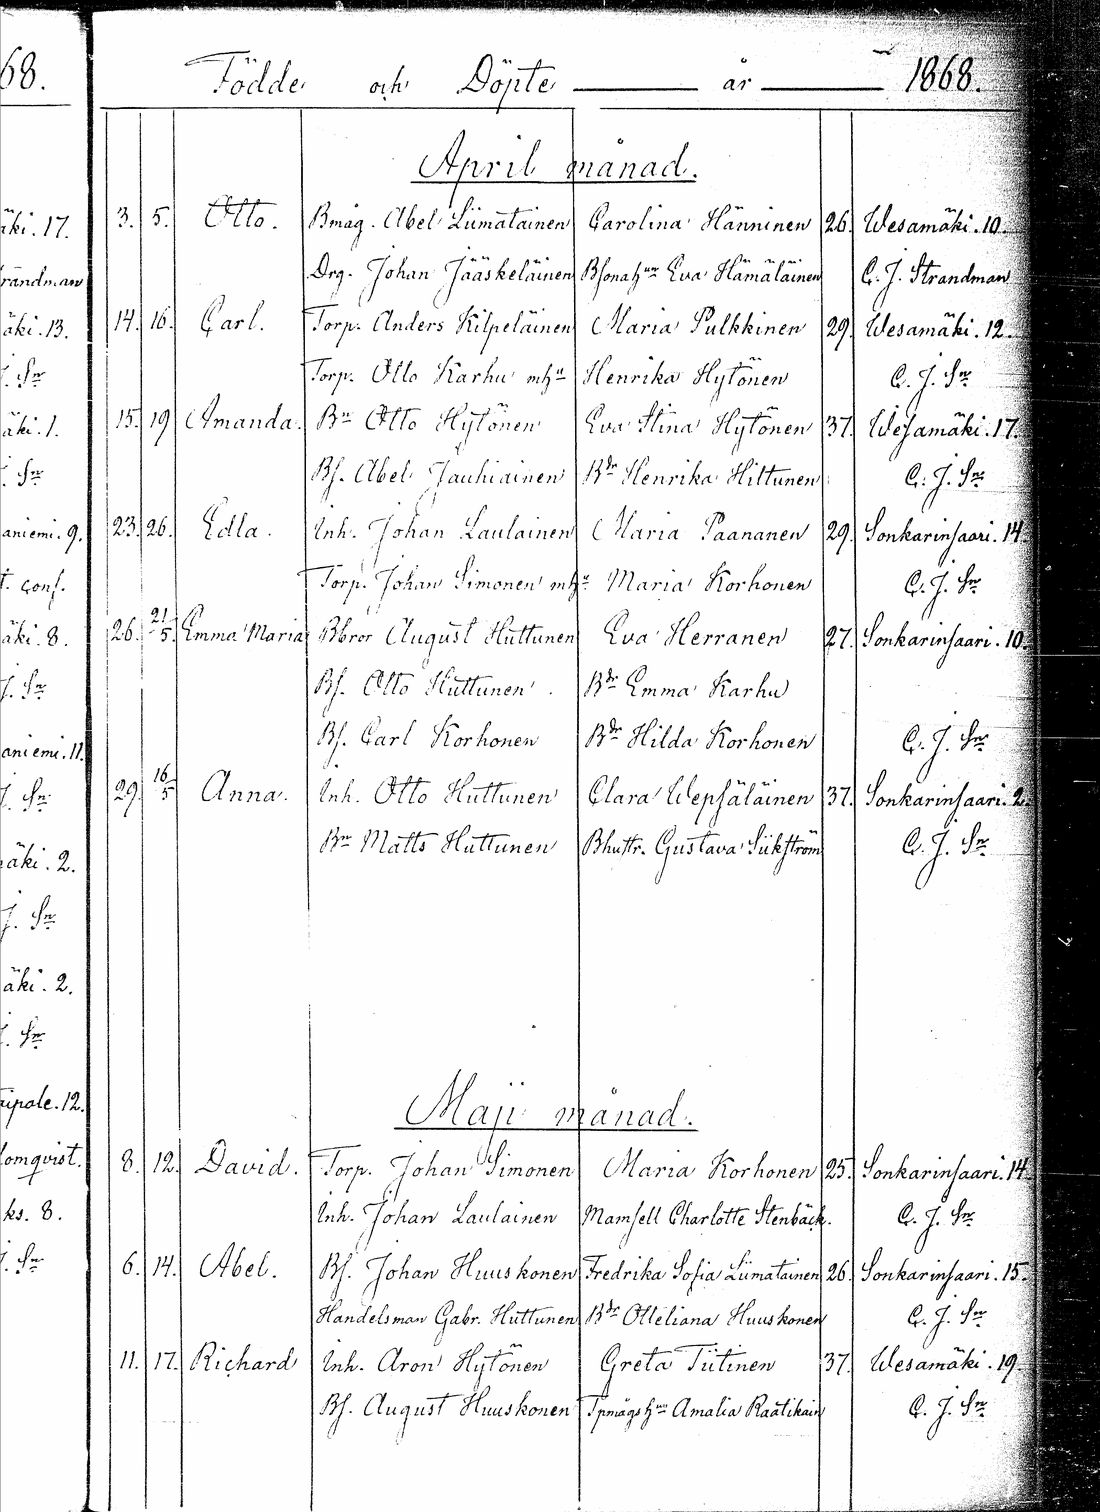 68.
Födde och Döpte år 1868.
April månad.
äki. 17. 3. 5. Otto. Bmåg. Abel Liimatainen Carolina Hänninen 26. Wesamäki. 10.
trandman Drg. Johan Jääskeläinen Eva Hämäläinen C. J. Strandman
äki. 13. 14. 16. Carl. Torp. Anders Kilpeläinen Maria Pulkkinen 29. Wesamäki. 12.
J. Sn Torp. Otto Karhu mhu Henrika Hytönen C. J. Sn
äki. 1. 15. 19 Amanda. Bn Otto Hytönen Eva Stina Hytönen 37. Wesamäki. 17.
J. Sn Bs. Abel Jauhiainen Bdr Henrika Hiltunen C. J. Sn
aniemi. 9. 23. 26. Edla. Inh. Johan Laulainen Maria Paananen 29. Sonkarinsaari. 14.
t. conf. Torp. Johan Simonen mhu Maria Korhonen C. J. Sn
äki. 8. 26. 21/5. Emma Maria Bbror August Huttunen Eva Herranen 27. Sonkarinsaari. 10.
J. Sn Bs. Otto Huttunen. Bdr Emma Karhu
aniemi. 11. Bs. Carl Korhonen Bdr Hilda Korhonen C. J. Sn
J. Sn 29. 16/5 Anna. Inh. Otto Huttunen Clara Wepsäläinen 37. Sonkarinsaari. 2.
mäki. 2. Bn Matts Huttunen Bhustr. Gustava Siikström C. J. Sn
J. Sn
äki. 2.
J. Sn
aipale. 12.
Maji månad.
lomqvist. 8. 12. David. Torp. Johan Simonen Maria Korhonen 25. Sonkarinsaari. 14.
ks. 8. Inh. Johan Laulainen Mamsell Charlotte Stenbäck. C. J. Sn
J. Sn 6. 14. Abel. Bs. Johan Huuskonen Fredrika Sofia Liimatainen 26. Sonkarinsaari. 15.
Handelsman Gabr. Huttunen Bdr Otteliana Huuskonen C. J. Sn
11. 17. Richard Inh. Aron Hytönen Greta Tiitinen 37. Wesamäki. 19.
Bs. August Huuskonen Amalia Raatikain C. J. Sn